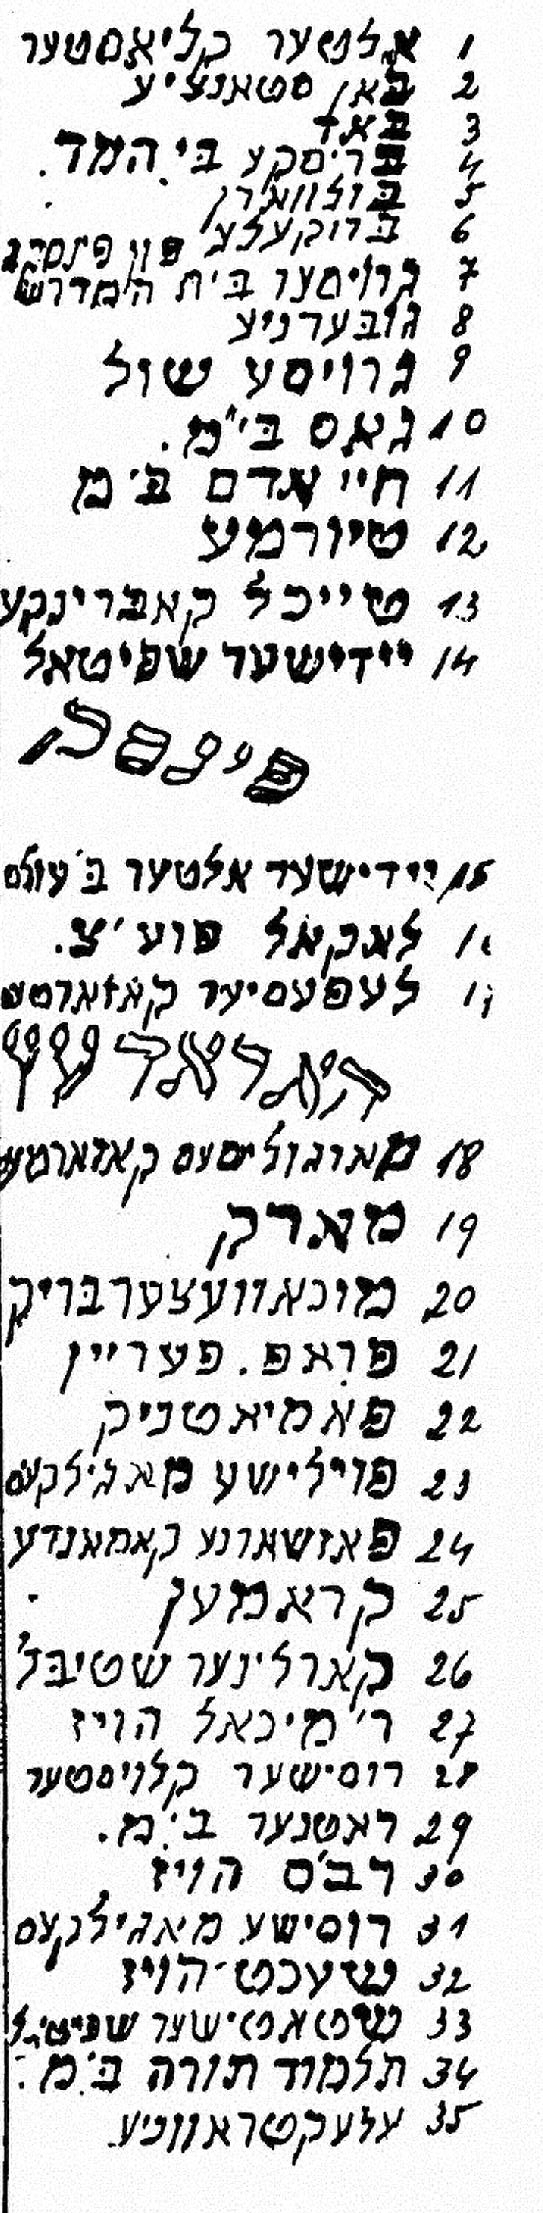 1 אלטער קליאסטער
2 באן סטאנציע
3 באד
4 בריסקע בי. המד.
5 בולווארן
6 ברוקעלע פון פינסק
7 גרויסער בית המדרש
8 גובערניע
9 גרויסע שול
10 גאס בי"מ.
11 חיי אדם ב'מ
12 טיורמע
13 טייכל קאברינקע
14 יידישער שפיטאל
פינסק
15 יידישער אלטער ב' עולם
16 לאקאל פוע'צ.
17 לעפעסיער קאזארמע
האראדעץ
18 קאזארמע
19 מארק
20 מוכאוועצער בריק
21 פראפ. פעריין
22 פאמיאטניק
23 פוילישע מאגילקעס
24 פאזשארנע קאמאנדע
25 קראמען
26 קארלינער שטיבל
27 ר' מיכאל הויז
28 רוסישער קלויסטער
29 ראטנער ב.מ.
30 רב'ס הויז
31 רוסישע מאגילקעס
32 שעכט-הויז
33 שטאטישער שפיטאל
34 תלמוד תורה ב.מ.
35 עלעקטראווניע